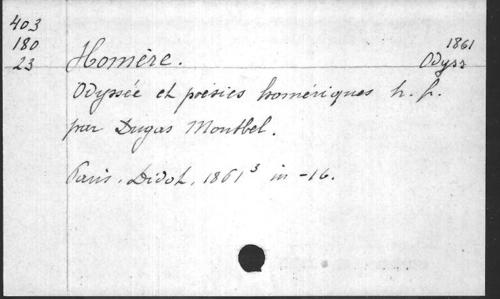 403
180
23
Homère.
1861
Odyss
Odyssée et poésies homériques tr. fr.
par Dugas Montbel.
Paris. Didot, 1861³ in-16.